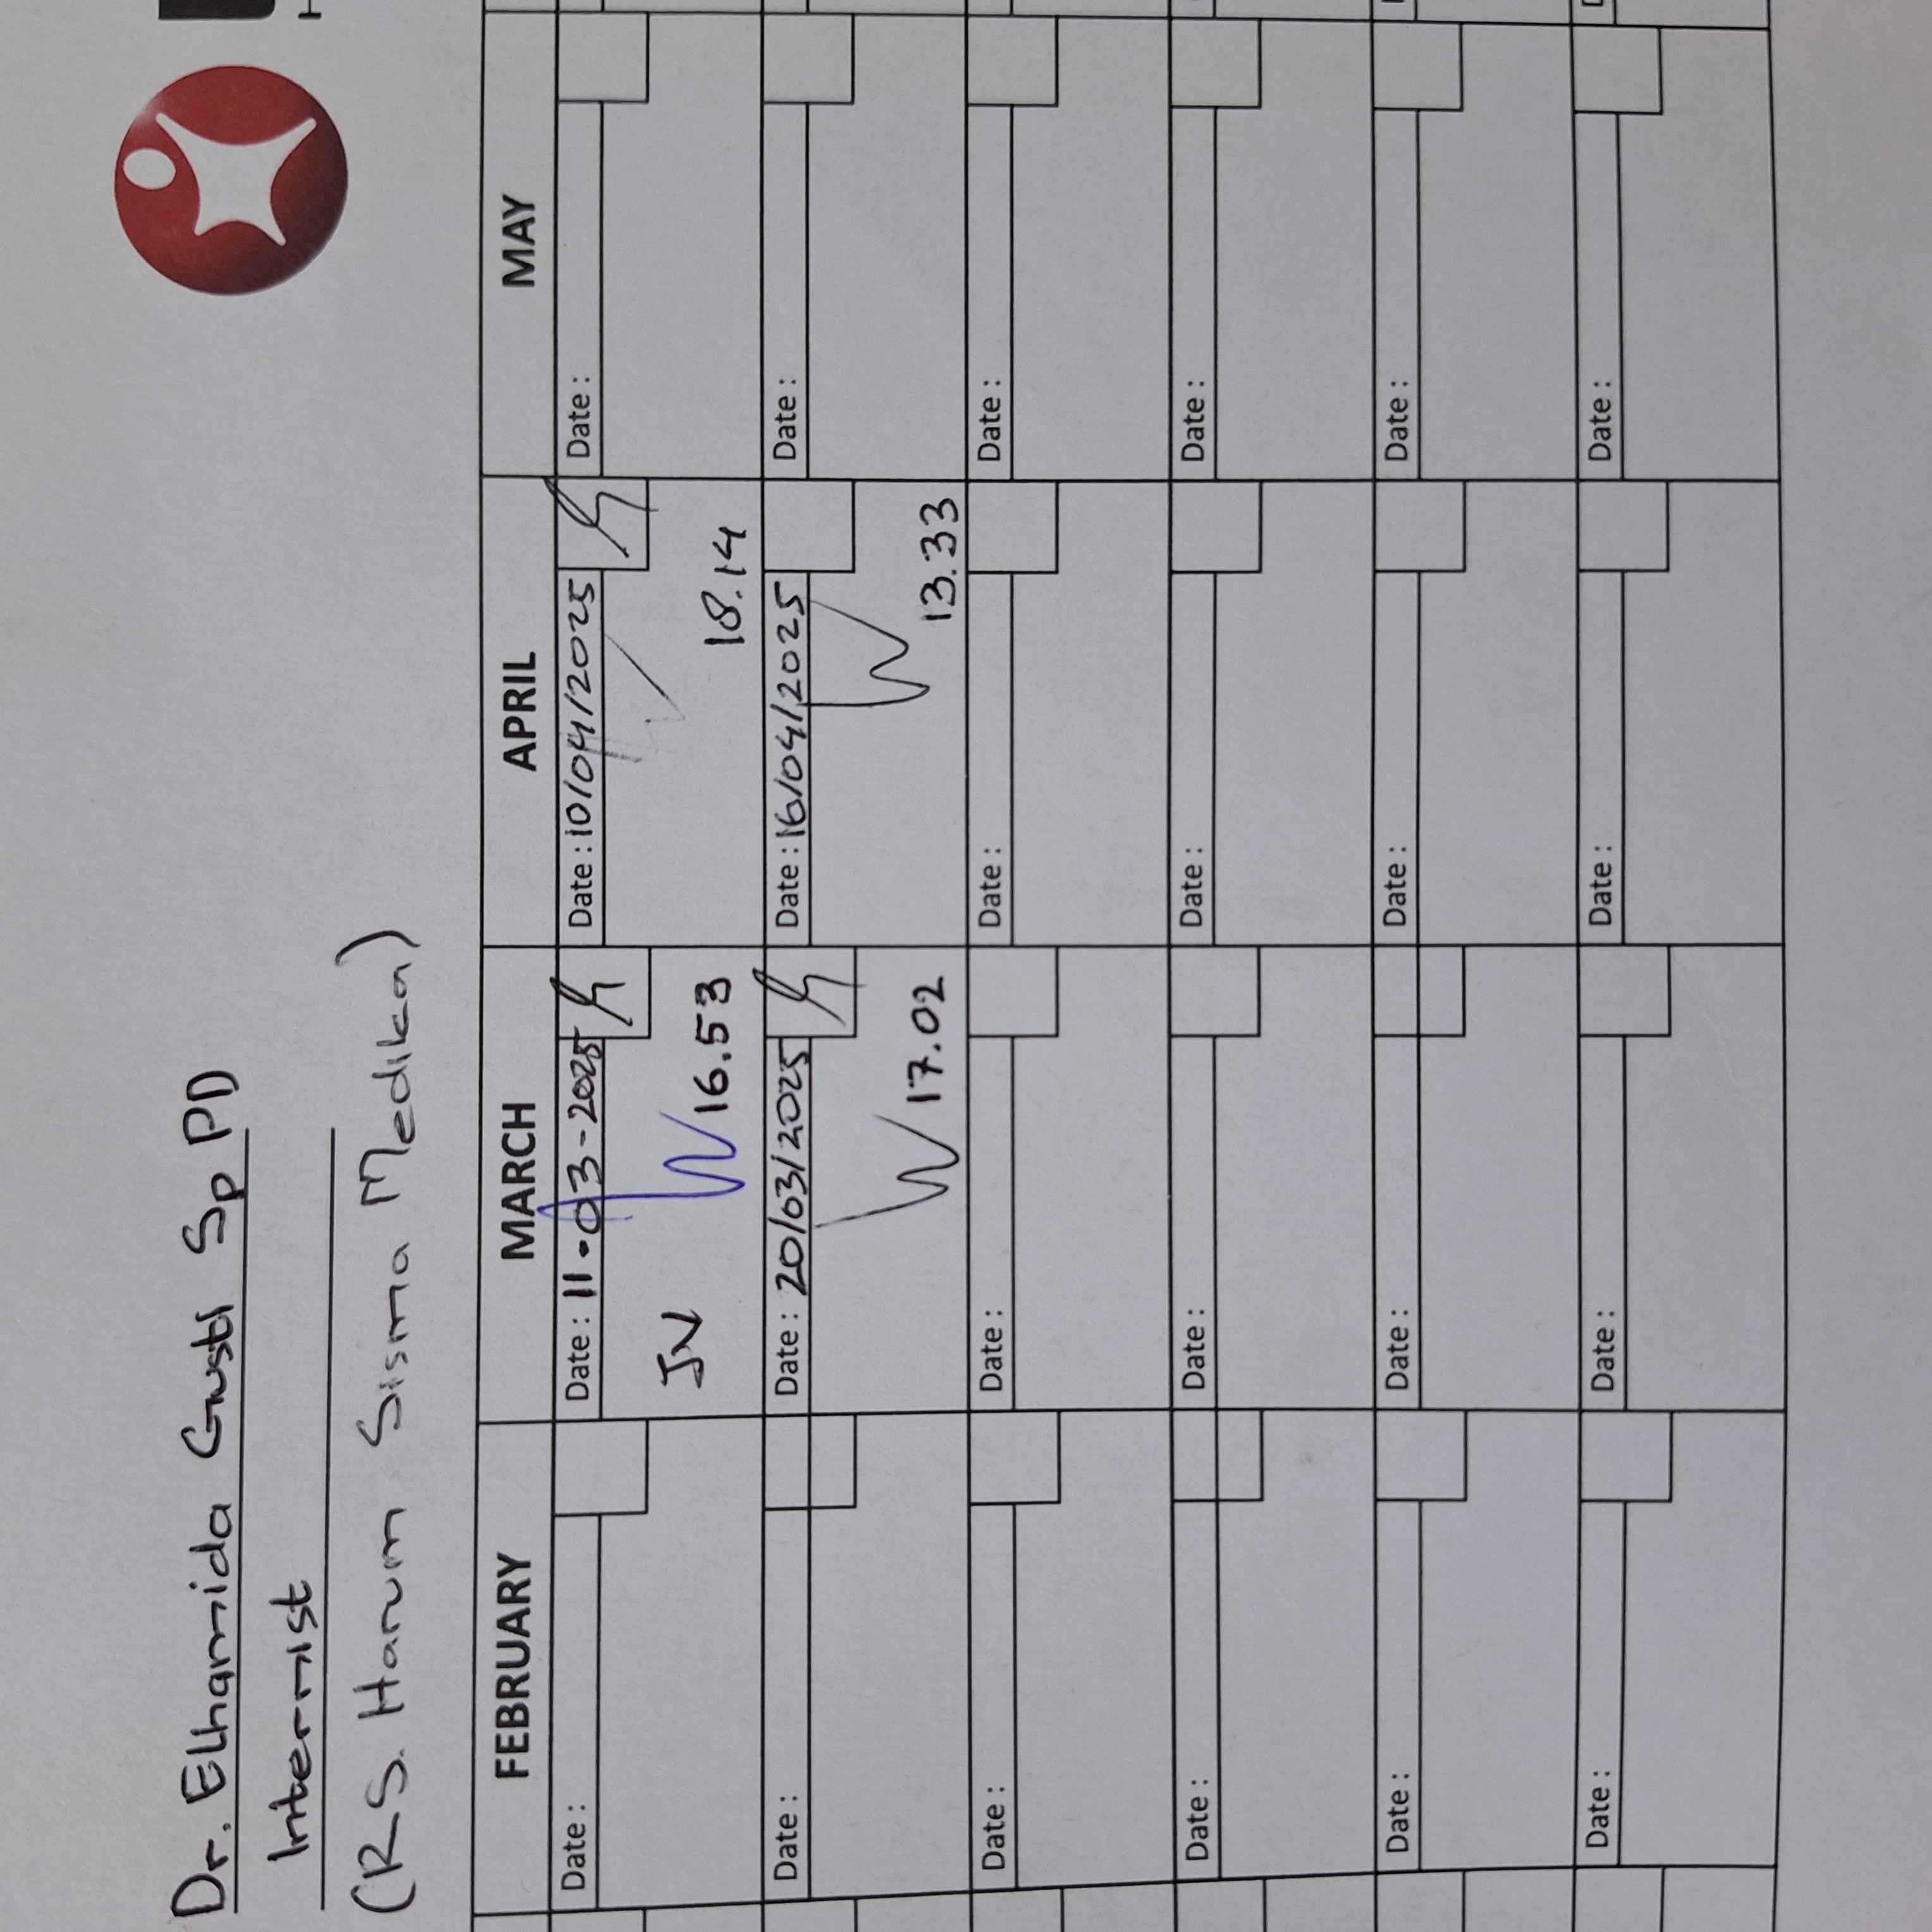 Dr. Elhamida Gusti Sp PD
Internist
(R.S. Harum Sisma Medika)
FEBRUARY MARCH APRIL MAY
Date : Date : 11-03-2025 Date : 10/04/2025 Date :
JW
16.53 18.14
Date : Date : 20/03/2025 Date : 16/04/2025 Date :
17.02 13.33
Date : Date : Date : Date :
Date : Date : Date : Date :
Date : Date : Date : Date :
Date : Date : Date : Date :